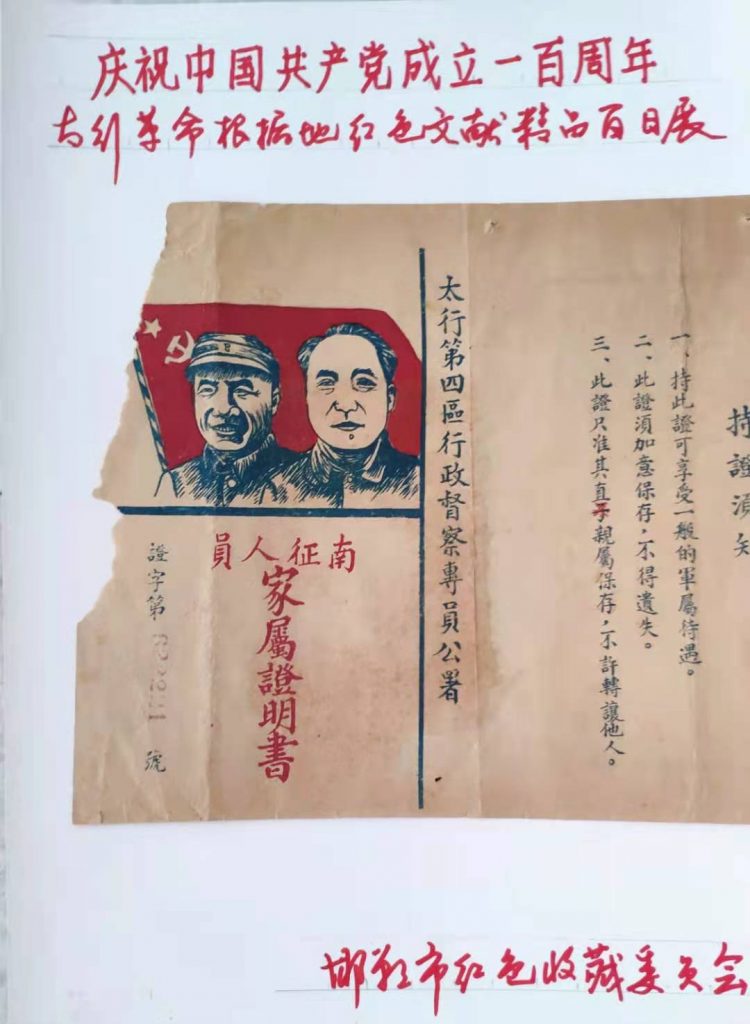 庆祝中国共产党成立一百周年
太行革命根据地红色文献精品百日展
持證須知
一、持此證可享受一般的軍屬待遇。
二、此證須加意保存，不得遺失。
三、此證只准其直親屬保存，不許轉讓他人。
太行第四區行政督察專員公署
南征人員
家屬證明書
證字第 號
邯郸市红色收藏委员会